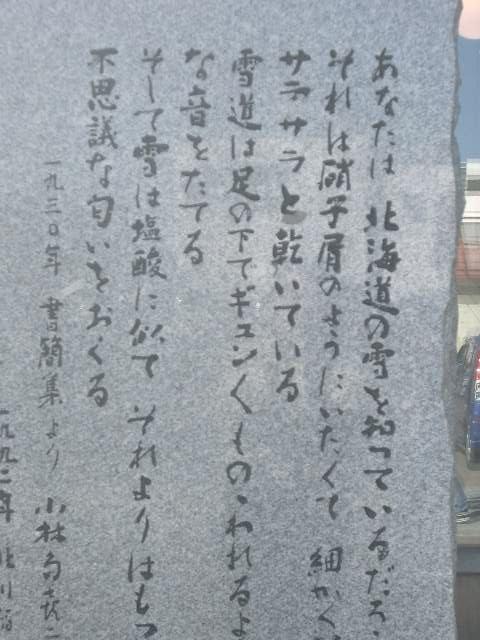 あなたは 北海道の雪を知っているだろ
それは硝子屑のようにいたくて 細かく
サラサラと乾いている
雪道は足の下でギュンくものゝわれるよ
な音をたてる
そして雪は塩酸に似て それよりはもつ
不思議な匂いをおくる
一九三〇年 書簡集より 小林多喜二
一九九二年